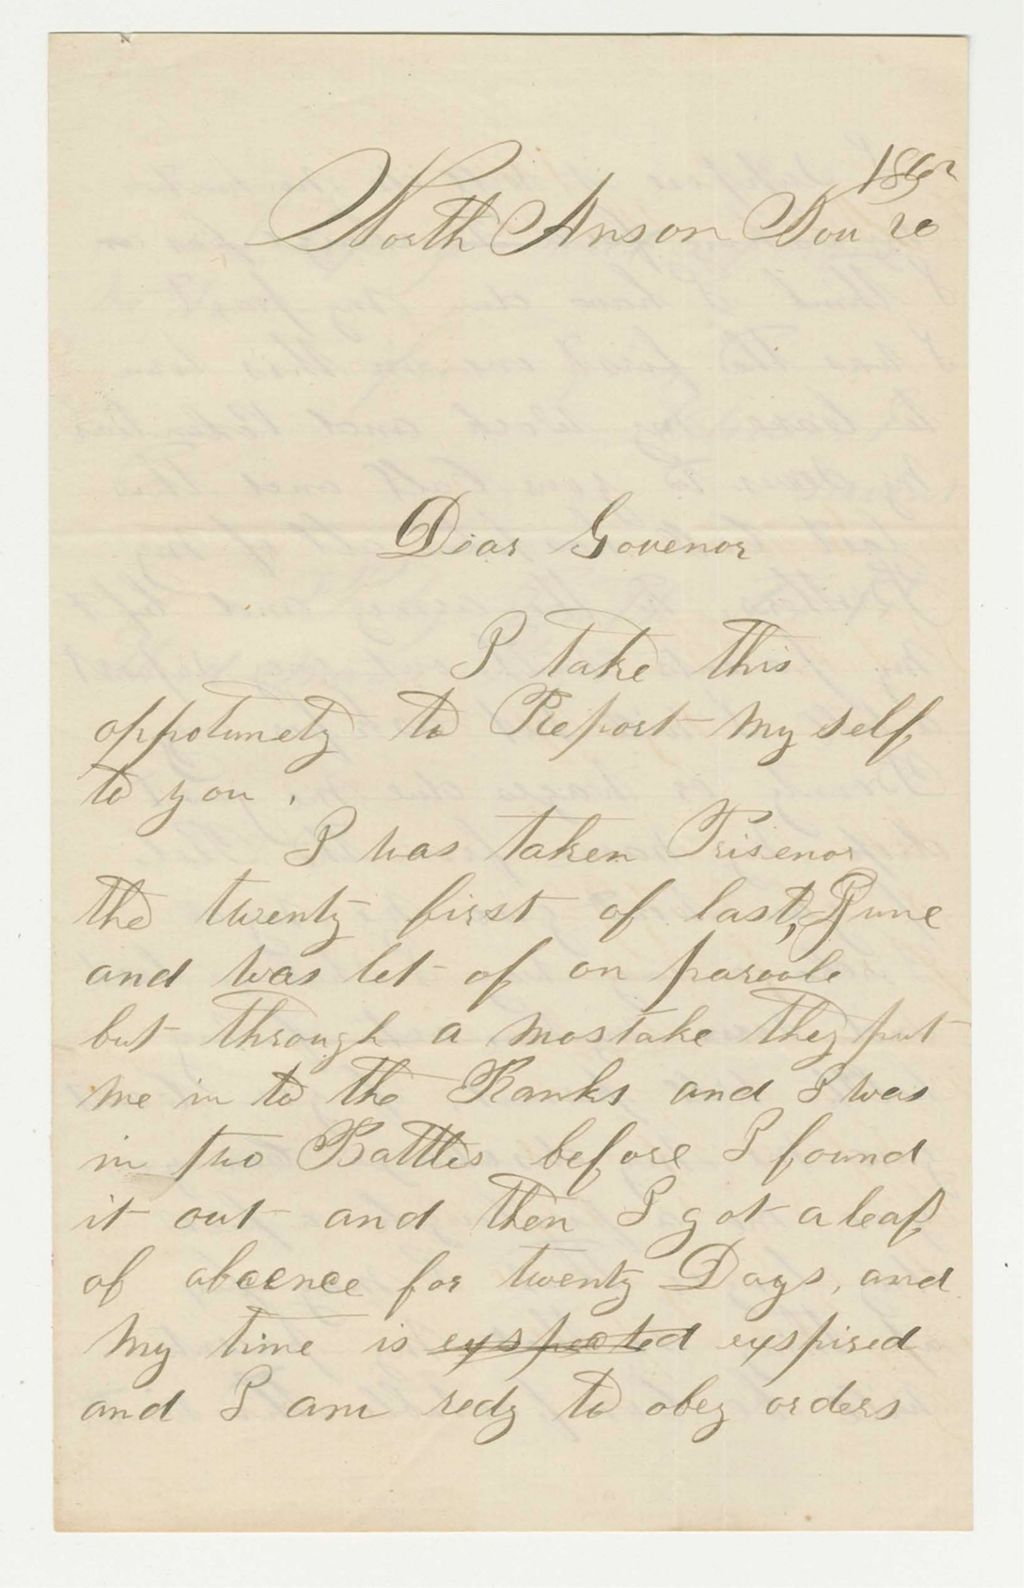 1862
North Anson Nov 20
Diar Govenor
I take this
oppotunety to Report my self
to you.
I was taken Prisenor
the twenty first of last, June
and was let of on paroole
but through a mostake they put
me in to the Ranks and I was
in two Battles before I found
it out and then I got a leaf
of abcence for twenty Days, and
my time is exspected exspired
and I am redy to obey orders